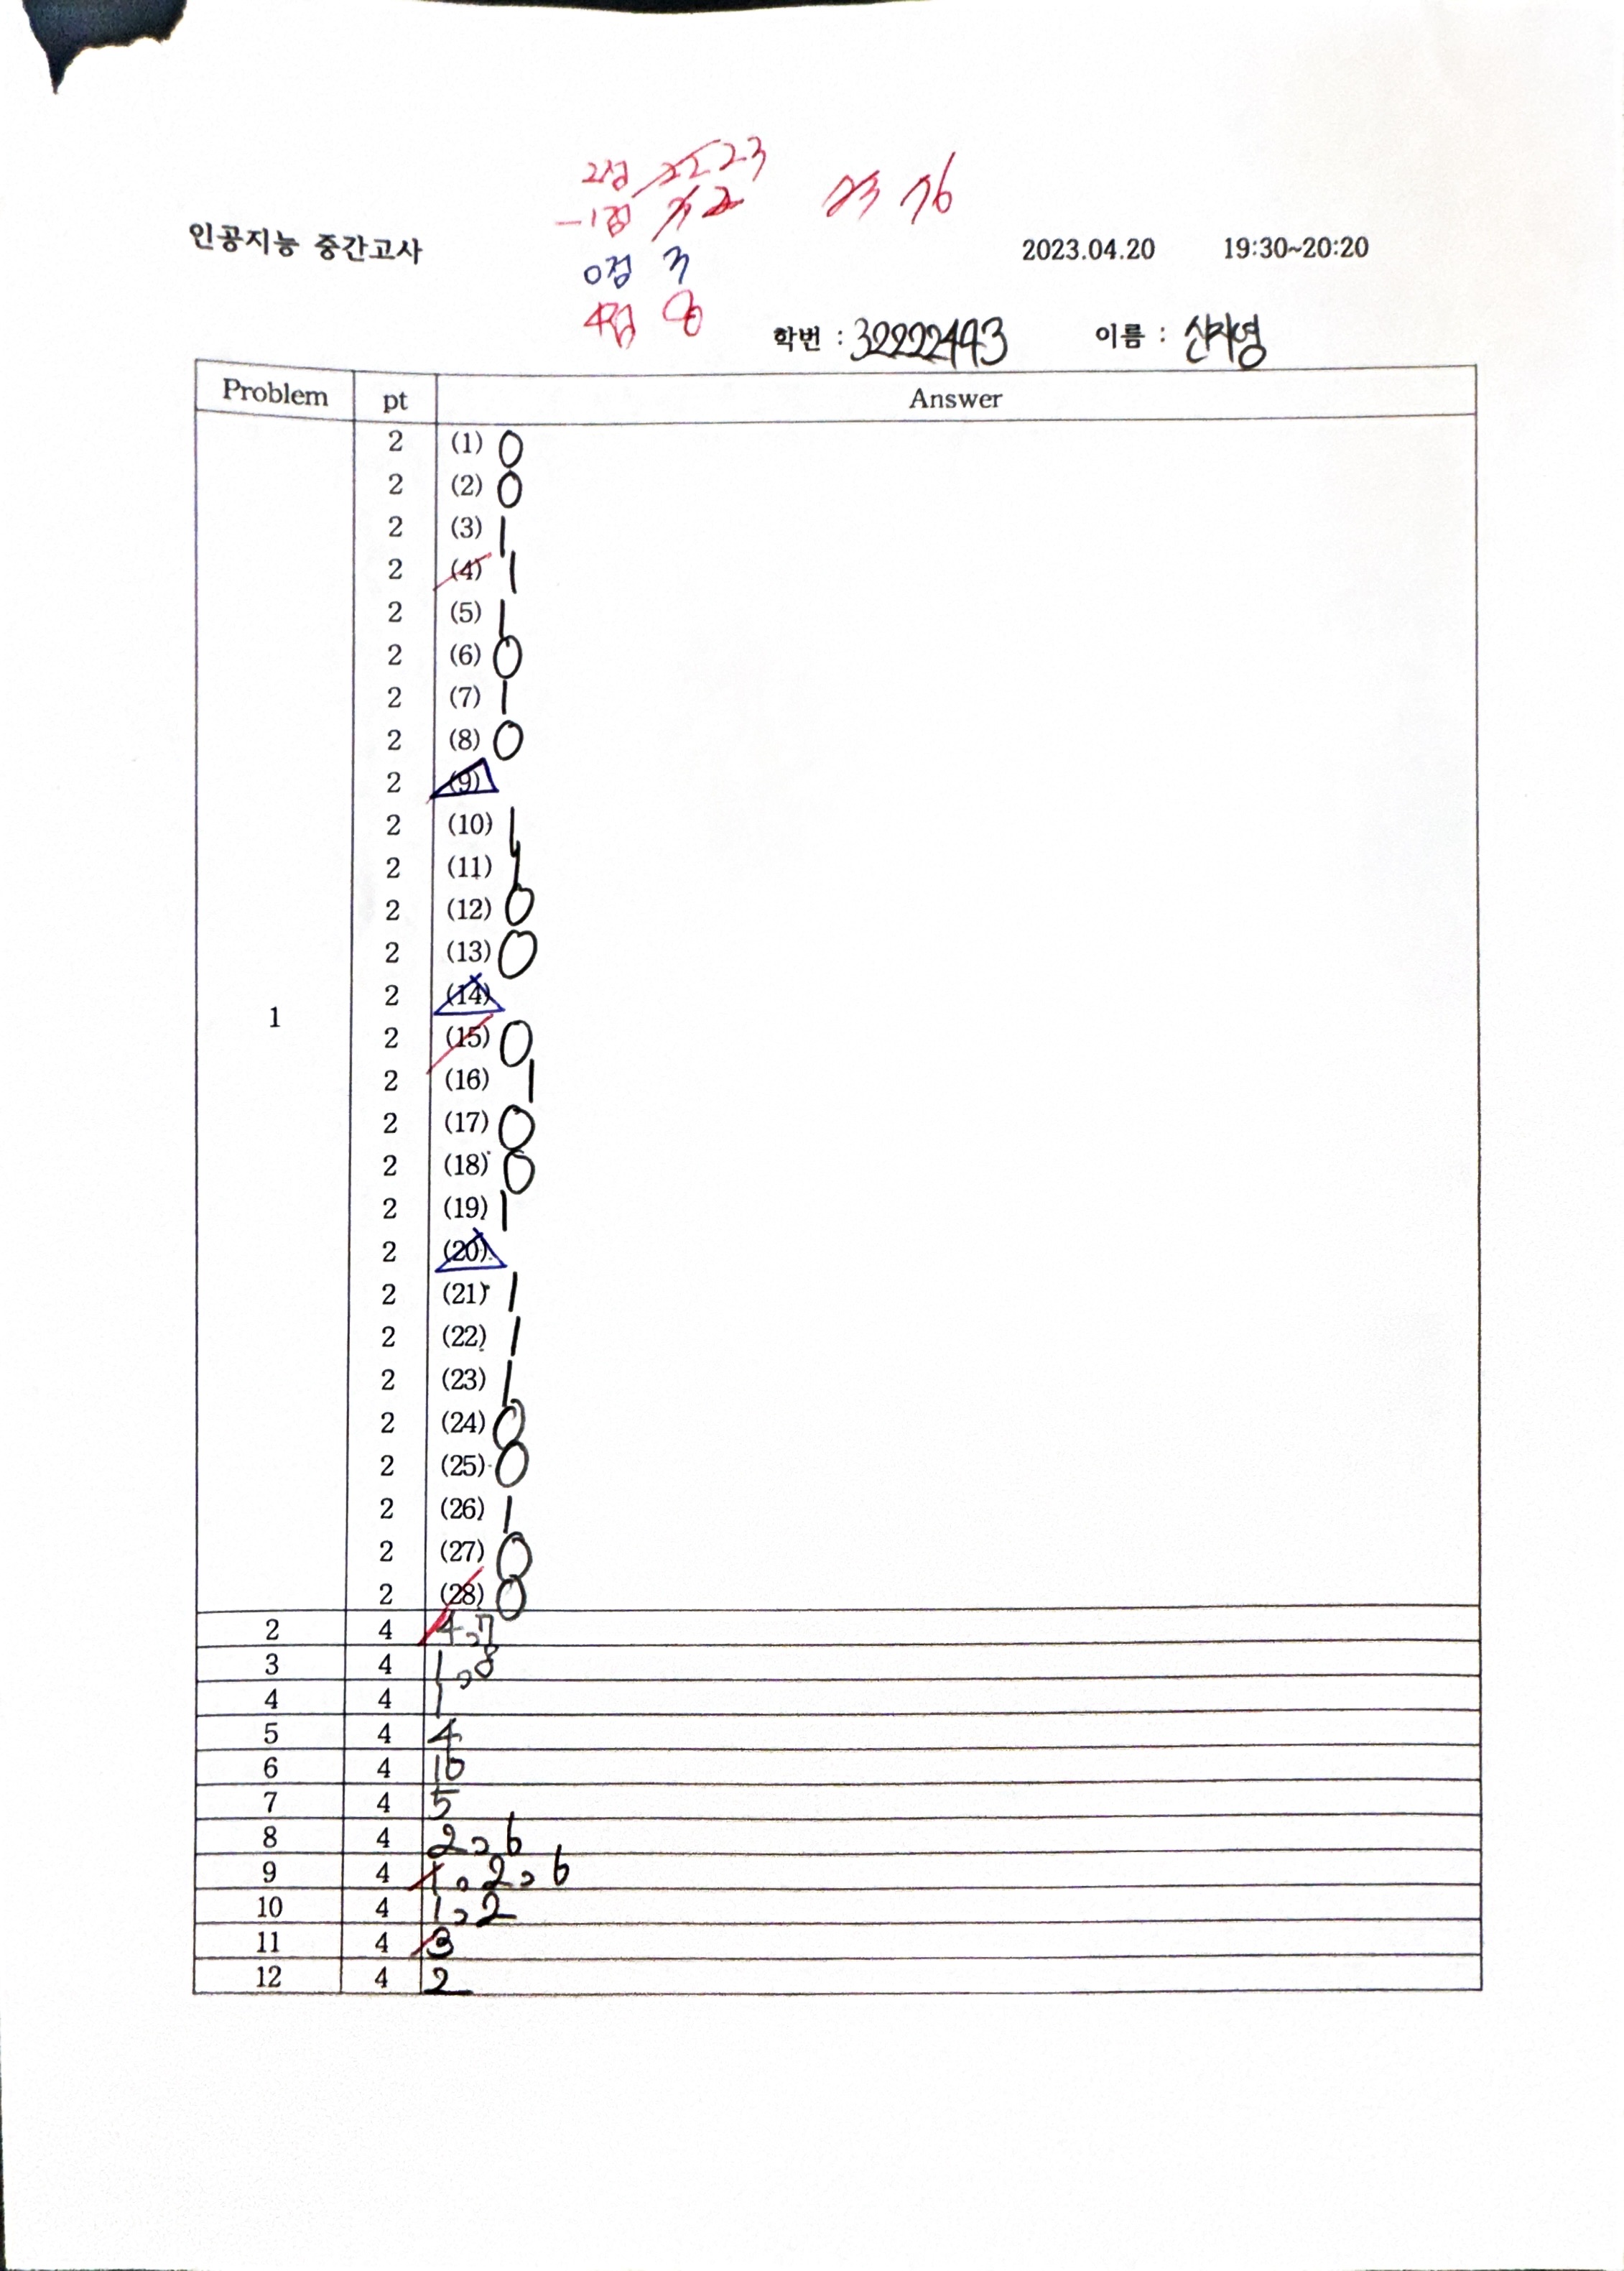 2점 22 23
-1점 2
0점 3
4점 8
76
인공지능 중간고사 2023.04.20 19:30~20:20
학번 : 32222493 이름 :
Problem pt Answer
1
2 (1) 0
2 (2) 0
2 (3) 1
2 (4) 1
2 (5) 1
2 (6) 0
2 (7) 1
2 (8) 0
2 (9)
2 (10) 1
2 (11) 1
2 (12) 0
2 (13) 0
2 (14)
2 (15) 0
2 (16) 1
2 (17) 0
2 (18) 0
2 (19) 1
2 (20)
2 (21) 1
2 (22) 1
2 (23) 1
2 (24) 0
2 (25) 0
2 (26) 1
2 (27) 0
2 (28) 0
2 4 4,7
3 4 1,8
4 4 1
5 4 4
6 4 10
7 4 5
8 4 2,6
9 4 1,2,6
10 4 1,2
11 4 3
12 4 2